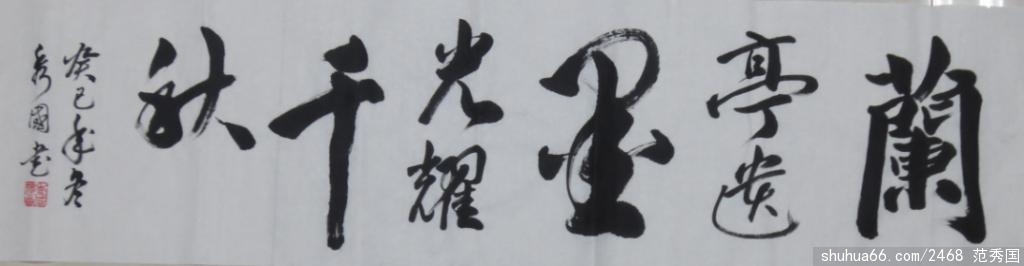 蘭亭遺墨光耀千秋
癸巳年冬
秀國書
shuhua66.com/2468 范秀国